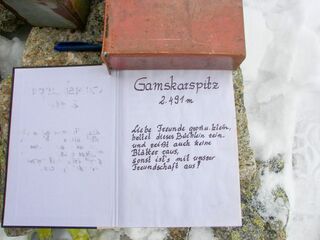 Gamskarspitz
2.491m
Liebe Freunde groß u. klein,
haltet dieses Büchlein rein,
und reißt auch keine
Blätter raus,
sonst ist's mit unsrer
Freundschaft aus!